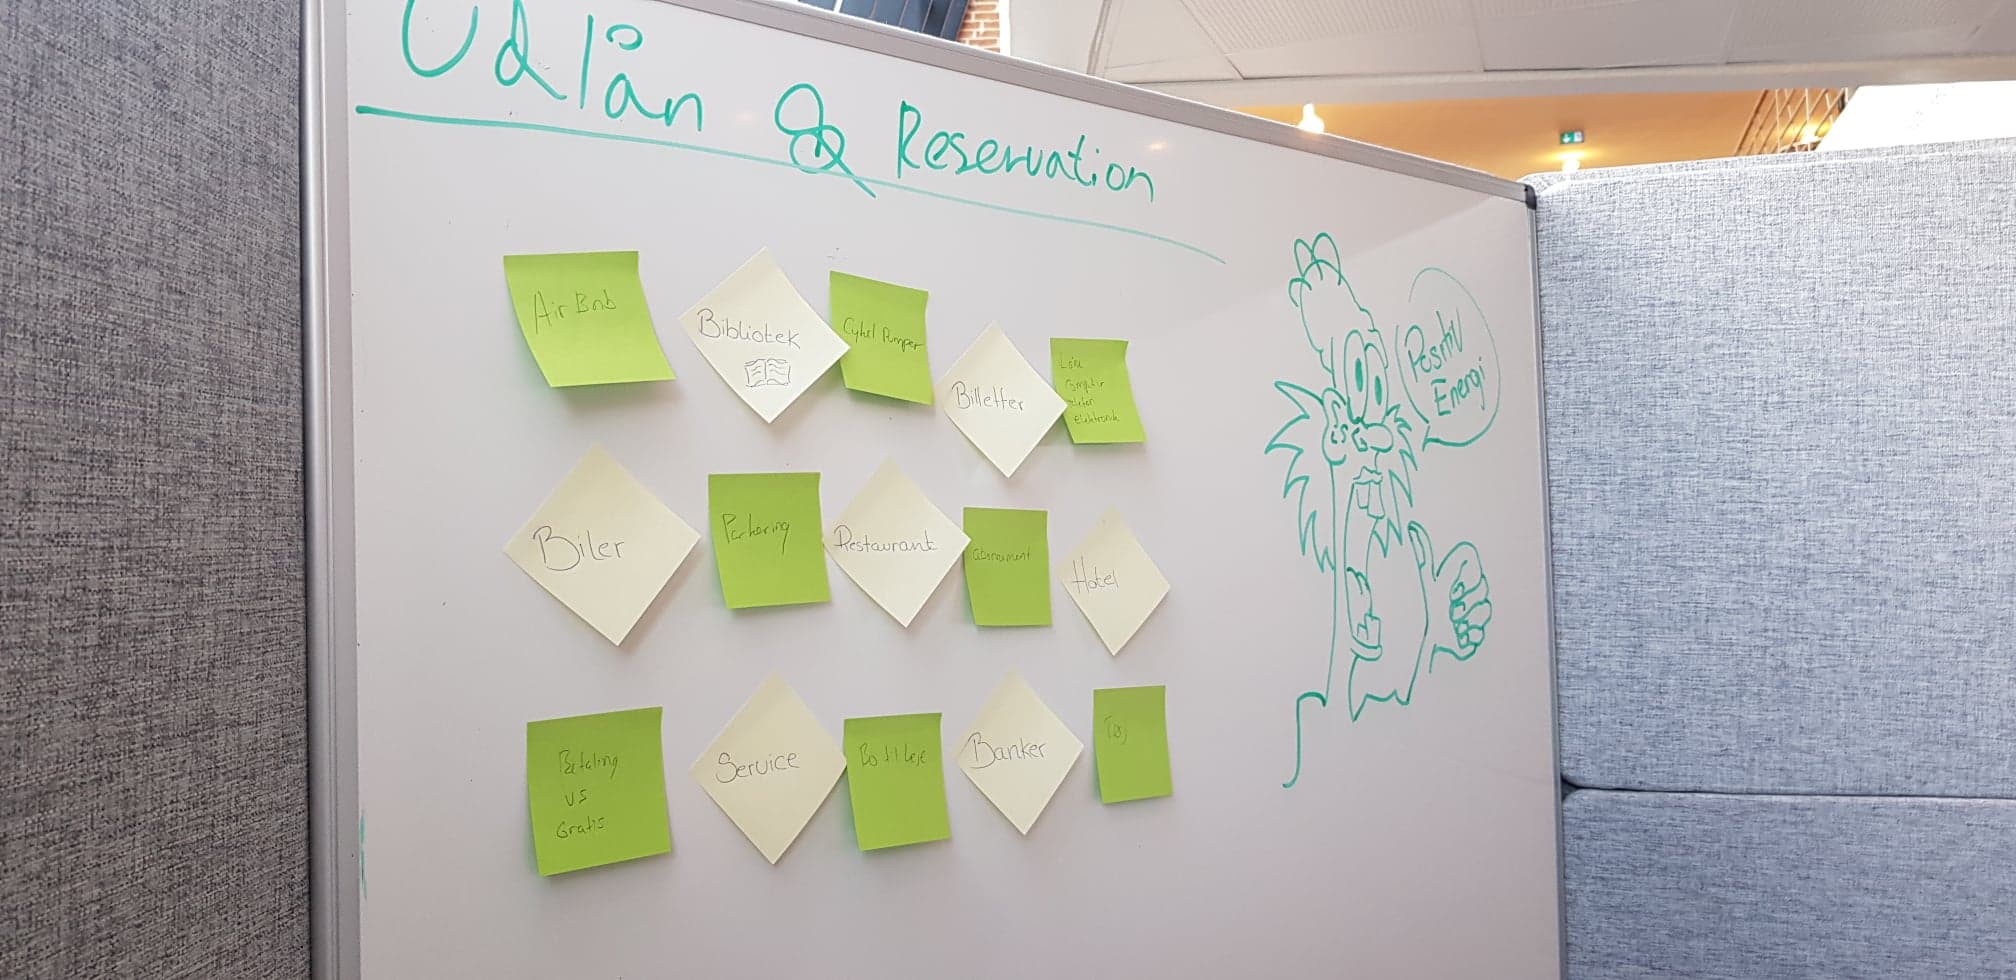 Udlån & Reservation
Air Bnb
Bibliotek
Cykel Pumper
Billetter
Låne
Computer
Elektronik
Positiv
Energi
Biler
Parkering
Restaurant
abonnement
Hotel
Betaling
vs
Gratis
Service
Banker
Tøj